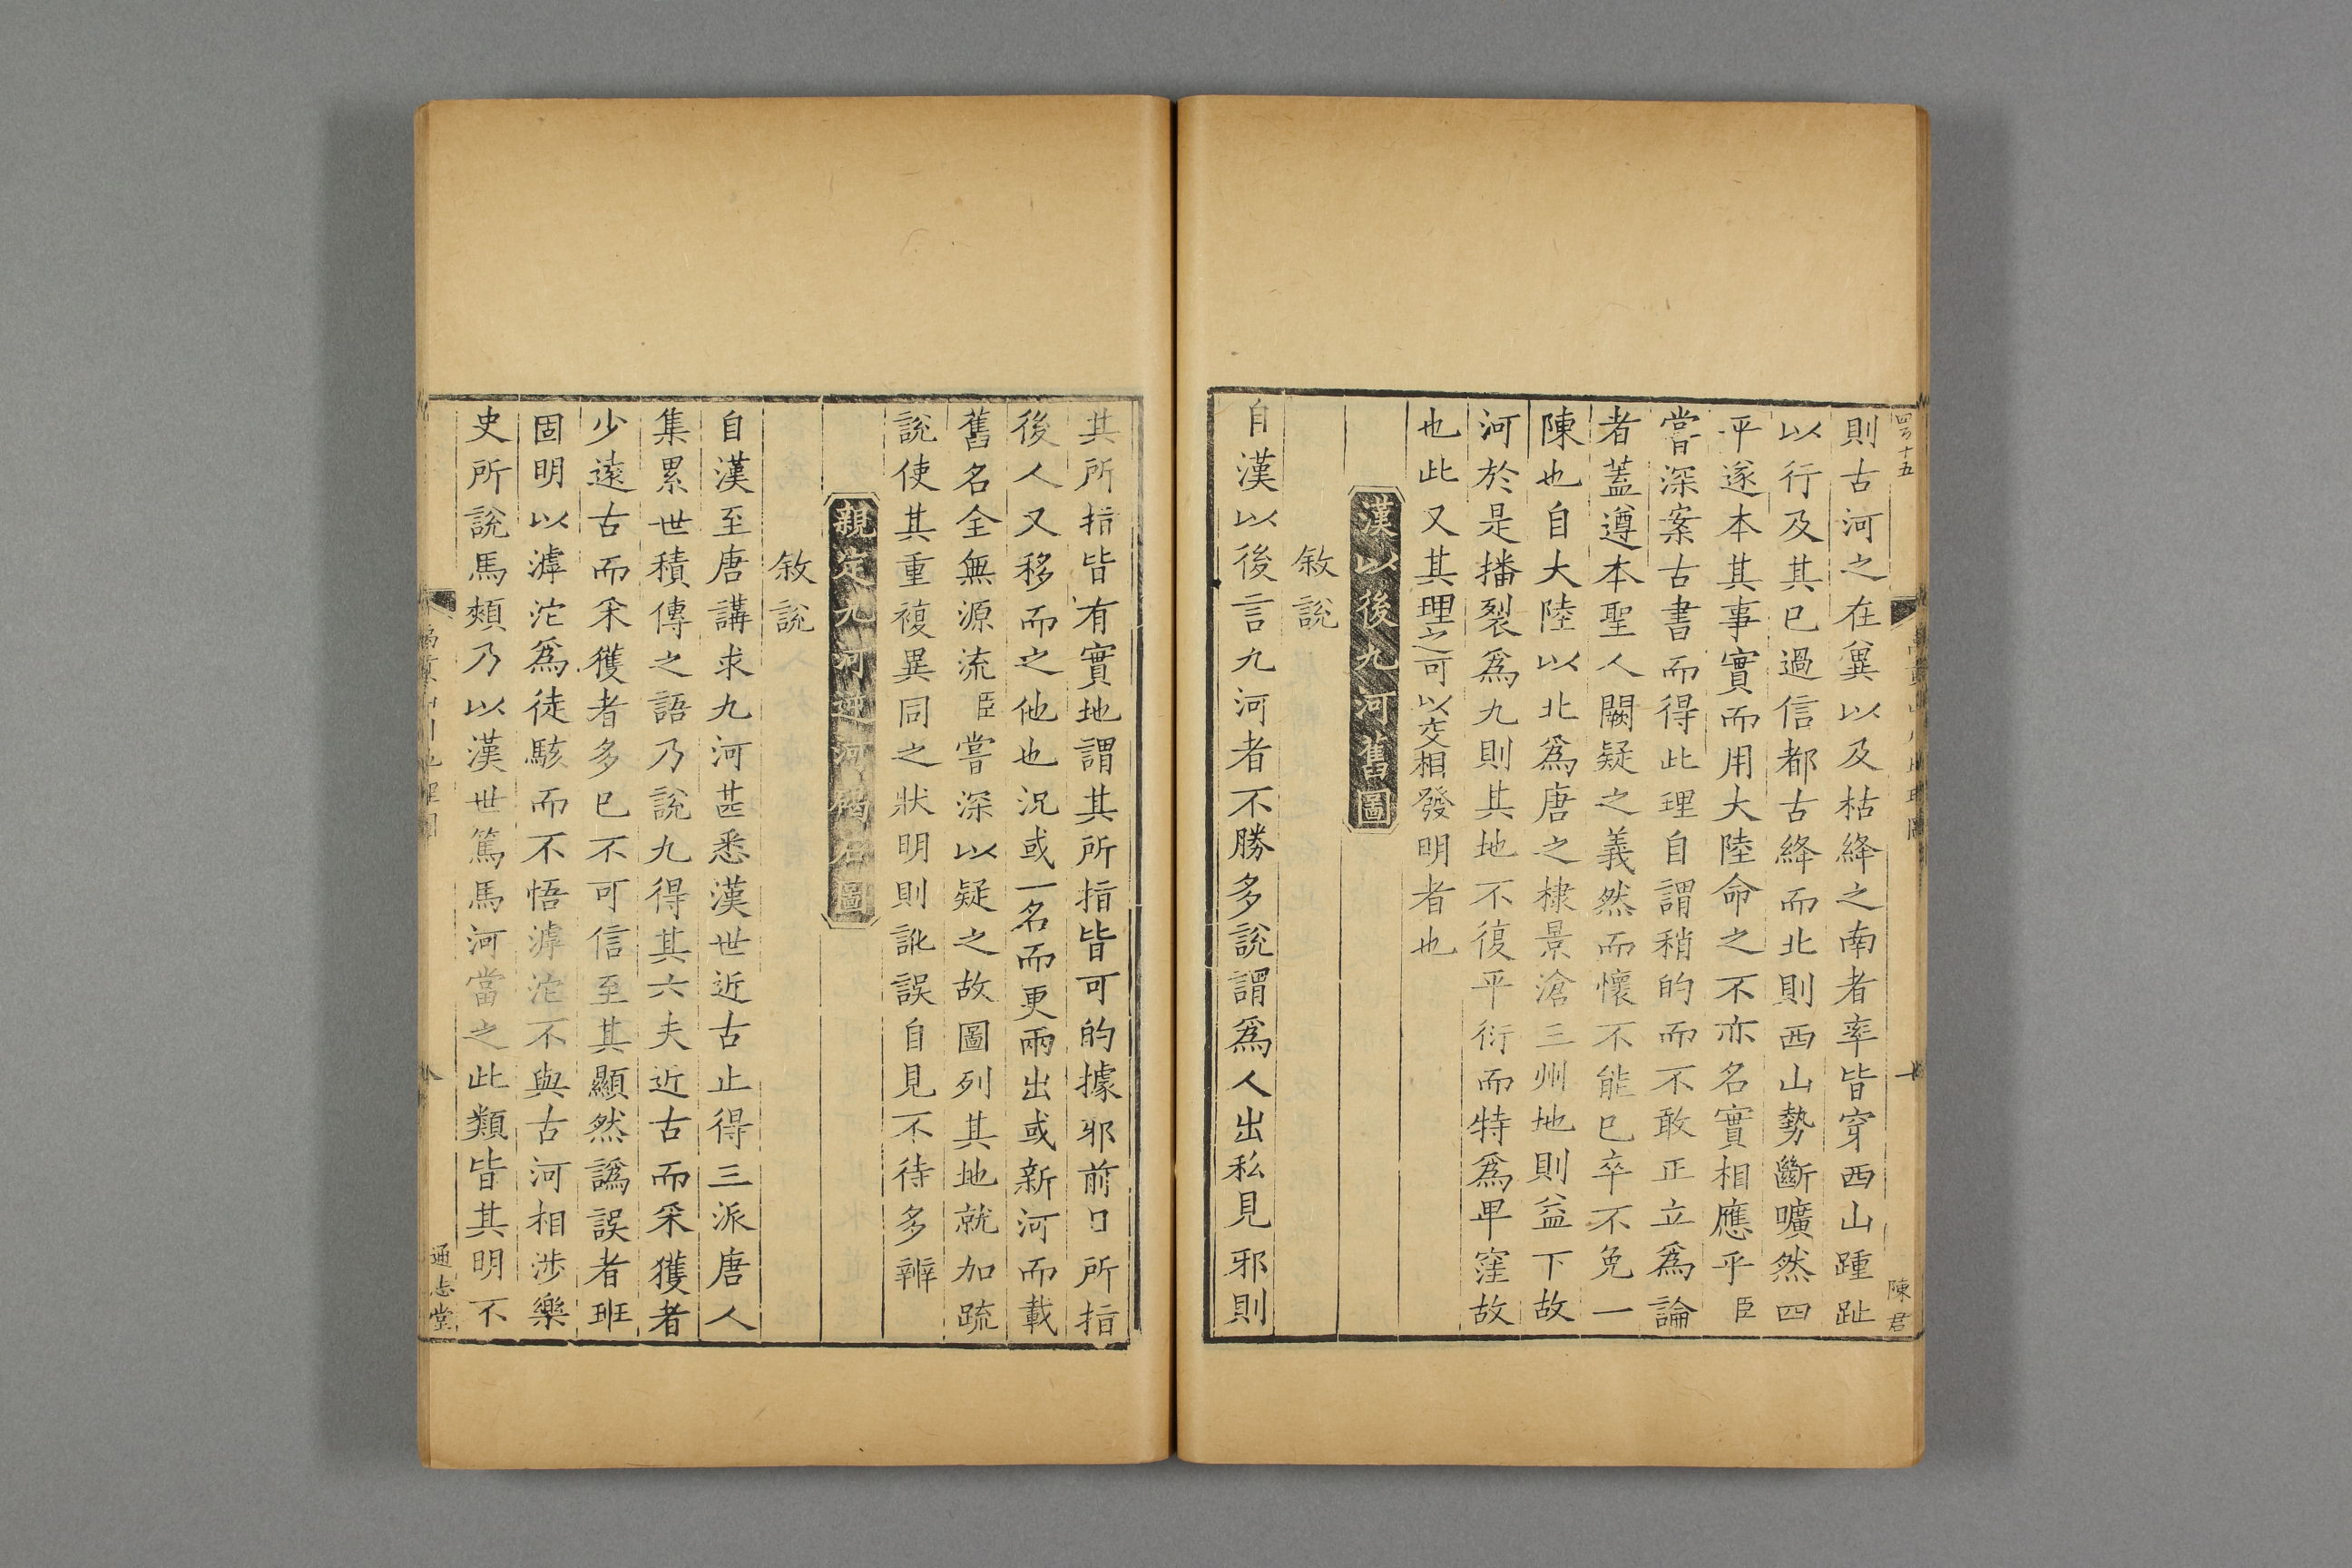 則古河之在冀以及枯絳之南者率皆穿西山踵趾
以行及其已過信都古絳而北則西山勢斷曠然四
平遂本其事實而用大陸命之不亦名實相應乎臣
嘗深案古書而得此理自謂稍的而不敢正立爲論
者蓋遵本聖人闕疑之義然而懷不能已卒不免一
陳也自大陸以北爲唐之棣景滄三州地則益下故
河於是播裂爲九則其地不復平衍而特爲卑窪故
也此又其理之可以交相發明者也
漢以後九河舊圖
敘說
自漢以後言九河者不勝多說謂爲人出私見邪則
陳君
其所指皆有實地謂其所指皆可的據邪前日所指
後人又移而之他也況或一名而更兩出或新河而載
舊名全無源流臣嘗深以疑之故圖列其地就加疏
說使其重複異同之狀明則訛誤自見不待多辨
親定九河逆河碣石圖
敘說
自漢至唐講求九河甚悉漢世近古止得三派唐人
集累世積傳之語乃說九得其六夫近古而采獲者
少遠古而采獲者多已不可信至其顯然譌誤者班
固明以滹沱爲徒駭而不悟滹沱不與古河相涉樂
史所說馬頰乃以漢世篤馬河當之此類皆其明不
通志堂